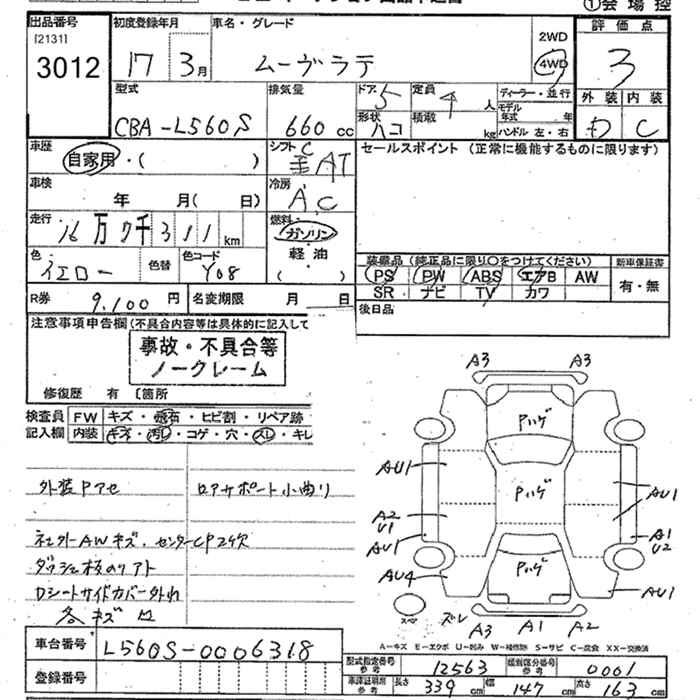 ①会場控
出品番号
[2131]
3012
初度登録年月
17 3月
車名・グレード
ムーヴラテ
2WD
4WD
評価点
3
型式
CBA-L560S
排気量
660 cc
ドア 5
定員 4 人
ディーラー・並行
モデル年式 年
形状 ハコ
積載 kg
ハンドル 左・右
外装 内装
D C
車歴
自家用・( )
シフト C
AT
セールスポイント (正常に機能するものに限ります)
車検
年 月( 日)
冷房
AC
走行
16万7千311km
燃料
ガソリン
軽油
( )
色
イエロー
色替
色コード
Y08
装備品 (純正品に限り○をつけてください)
PS PW ABS エアB AW
SR ナビ TV カワ
新車保証書
有・無
R券 9,100 円
名変期限 月 日
後日品
注意事項申告欄 (不具合内容等は具体的に記入して
事故・不具合等
ノークレーム
修復歴 有 〔箇所
検査員 FW キズ・飛石・ヒビ割・リペア跡
記入欄 内装 キズ・汚レ・コゲ・穴・スレ・キレ
外装Pアセ
ロアサポート小曲り
社外AWキズ、センターCP欠
ダッシュ板のリアト
Dシートサイドカバー外れ
各キズ
A3 A3
Pハゲ
AU1
Pハゲ
AU1
A2
U1
AU1
A1
U2
AU4
Pハゲ
AU1
スペ
ズレ
A3 A1 A2
A-キズ E-エクボ U-凹み W-補修跡 S-サビ C-腐食 XX-交換済
車台番号 L560S-0006318
登録番号
型式指定番号 参考 12563
類別区分番号 参考 0001
車検証明書 参考 長さ 339 cm 幅 147 cm 高さ 163 cm